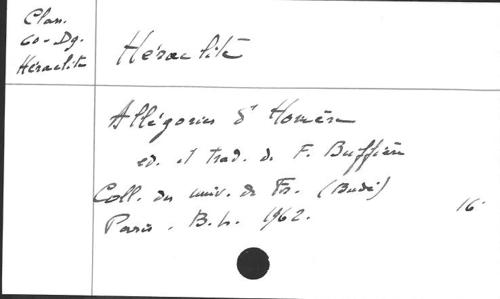 Clas.
60-Dg.
Héraclite
Héraclite
Allégories d'Homère
ed. et trad. de F. Buffière
Coll. des univ. de Fr. (Budé)
Paris. B.L. 1962.
16